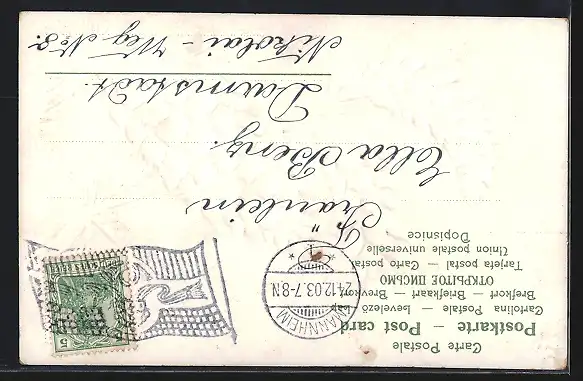 Carte Postale
Postkarte — Post card
Cartolina Postale — Levelező-Lap
Brefkort — Briefkaart — Brevkort
ОТКРЫТОЕ ПИСЬМО
Tarjeta postal — Carte postal
Union postale universelle
Dopisnice
MANNHEIM
24.12.03.7-8N
* 1 *
5
Fräulein
Ella Benz.
Darmstadt.
Nikolai-Weg No 8.